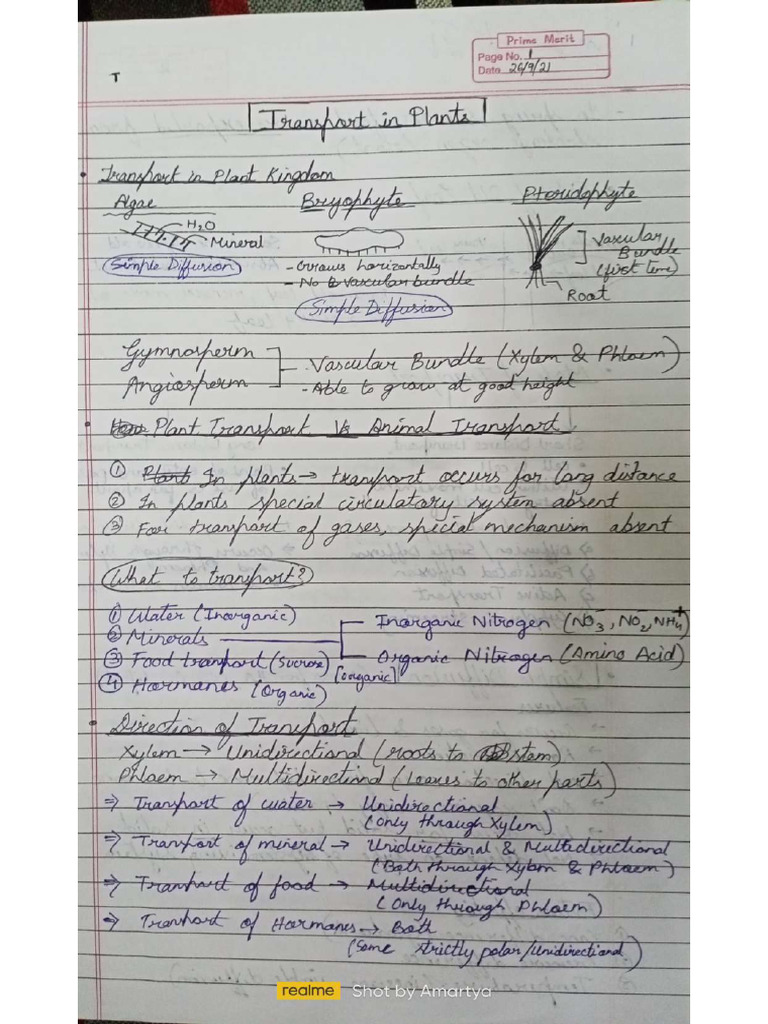 Prime Merit
Page No. 1
Date 26/9/21
T
Transport in Plants
• Transport in Plant Kingdom
Algae Bryophyte Pteridophyte
H2O
Mineral
Simple Diffusion
- Grows horizontally
- No vascular bundle
Simple Diffusion
Vascular Bundle (first time)
Root
Gymnosperm
Angiosperm
- Vascular Bundle (Xylem & Phloem)
- Able to grow at good height
• Plant Transport Vs Animal Transport
① Plant In plants → transport occurs for long distance
② In plants special circulatory system absent
③ For transport of gases, special mechanism absent
What to transport?
① Water (Inorganic)
② Minerals
Inorganic Nitrogen (NO3⁻, NO2⁻, NH4⁺)
Organic Nitrogen (Amino Acid)
③ Food tranport (sucrose) [organic]
④ Hormones (Organic)
• Direction of Transport
Xylem → Unidirectional (roots to stem)
Phloem → Multidirectional (Leaves to other parts)
⇒ Transport of water → Unidirectional
(Only through Xylem)
⇒ Transport of mineral → Unidirectional & Multidirectional
(Both through Xylem & Phloem)
⇒ Tranport of food → Multidirectional
(Only through Phloem)
⇒ Tranport of Hormones → Both
(Some strictly polar/Unidirectional)
realme Shot by Amartya